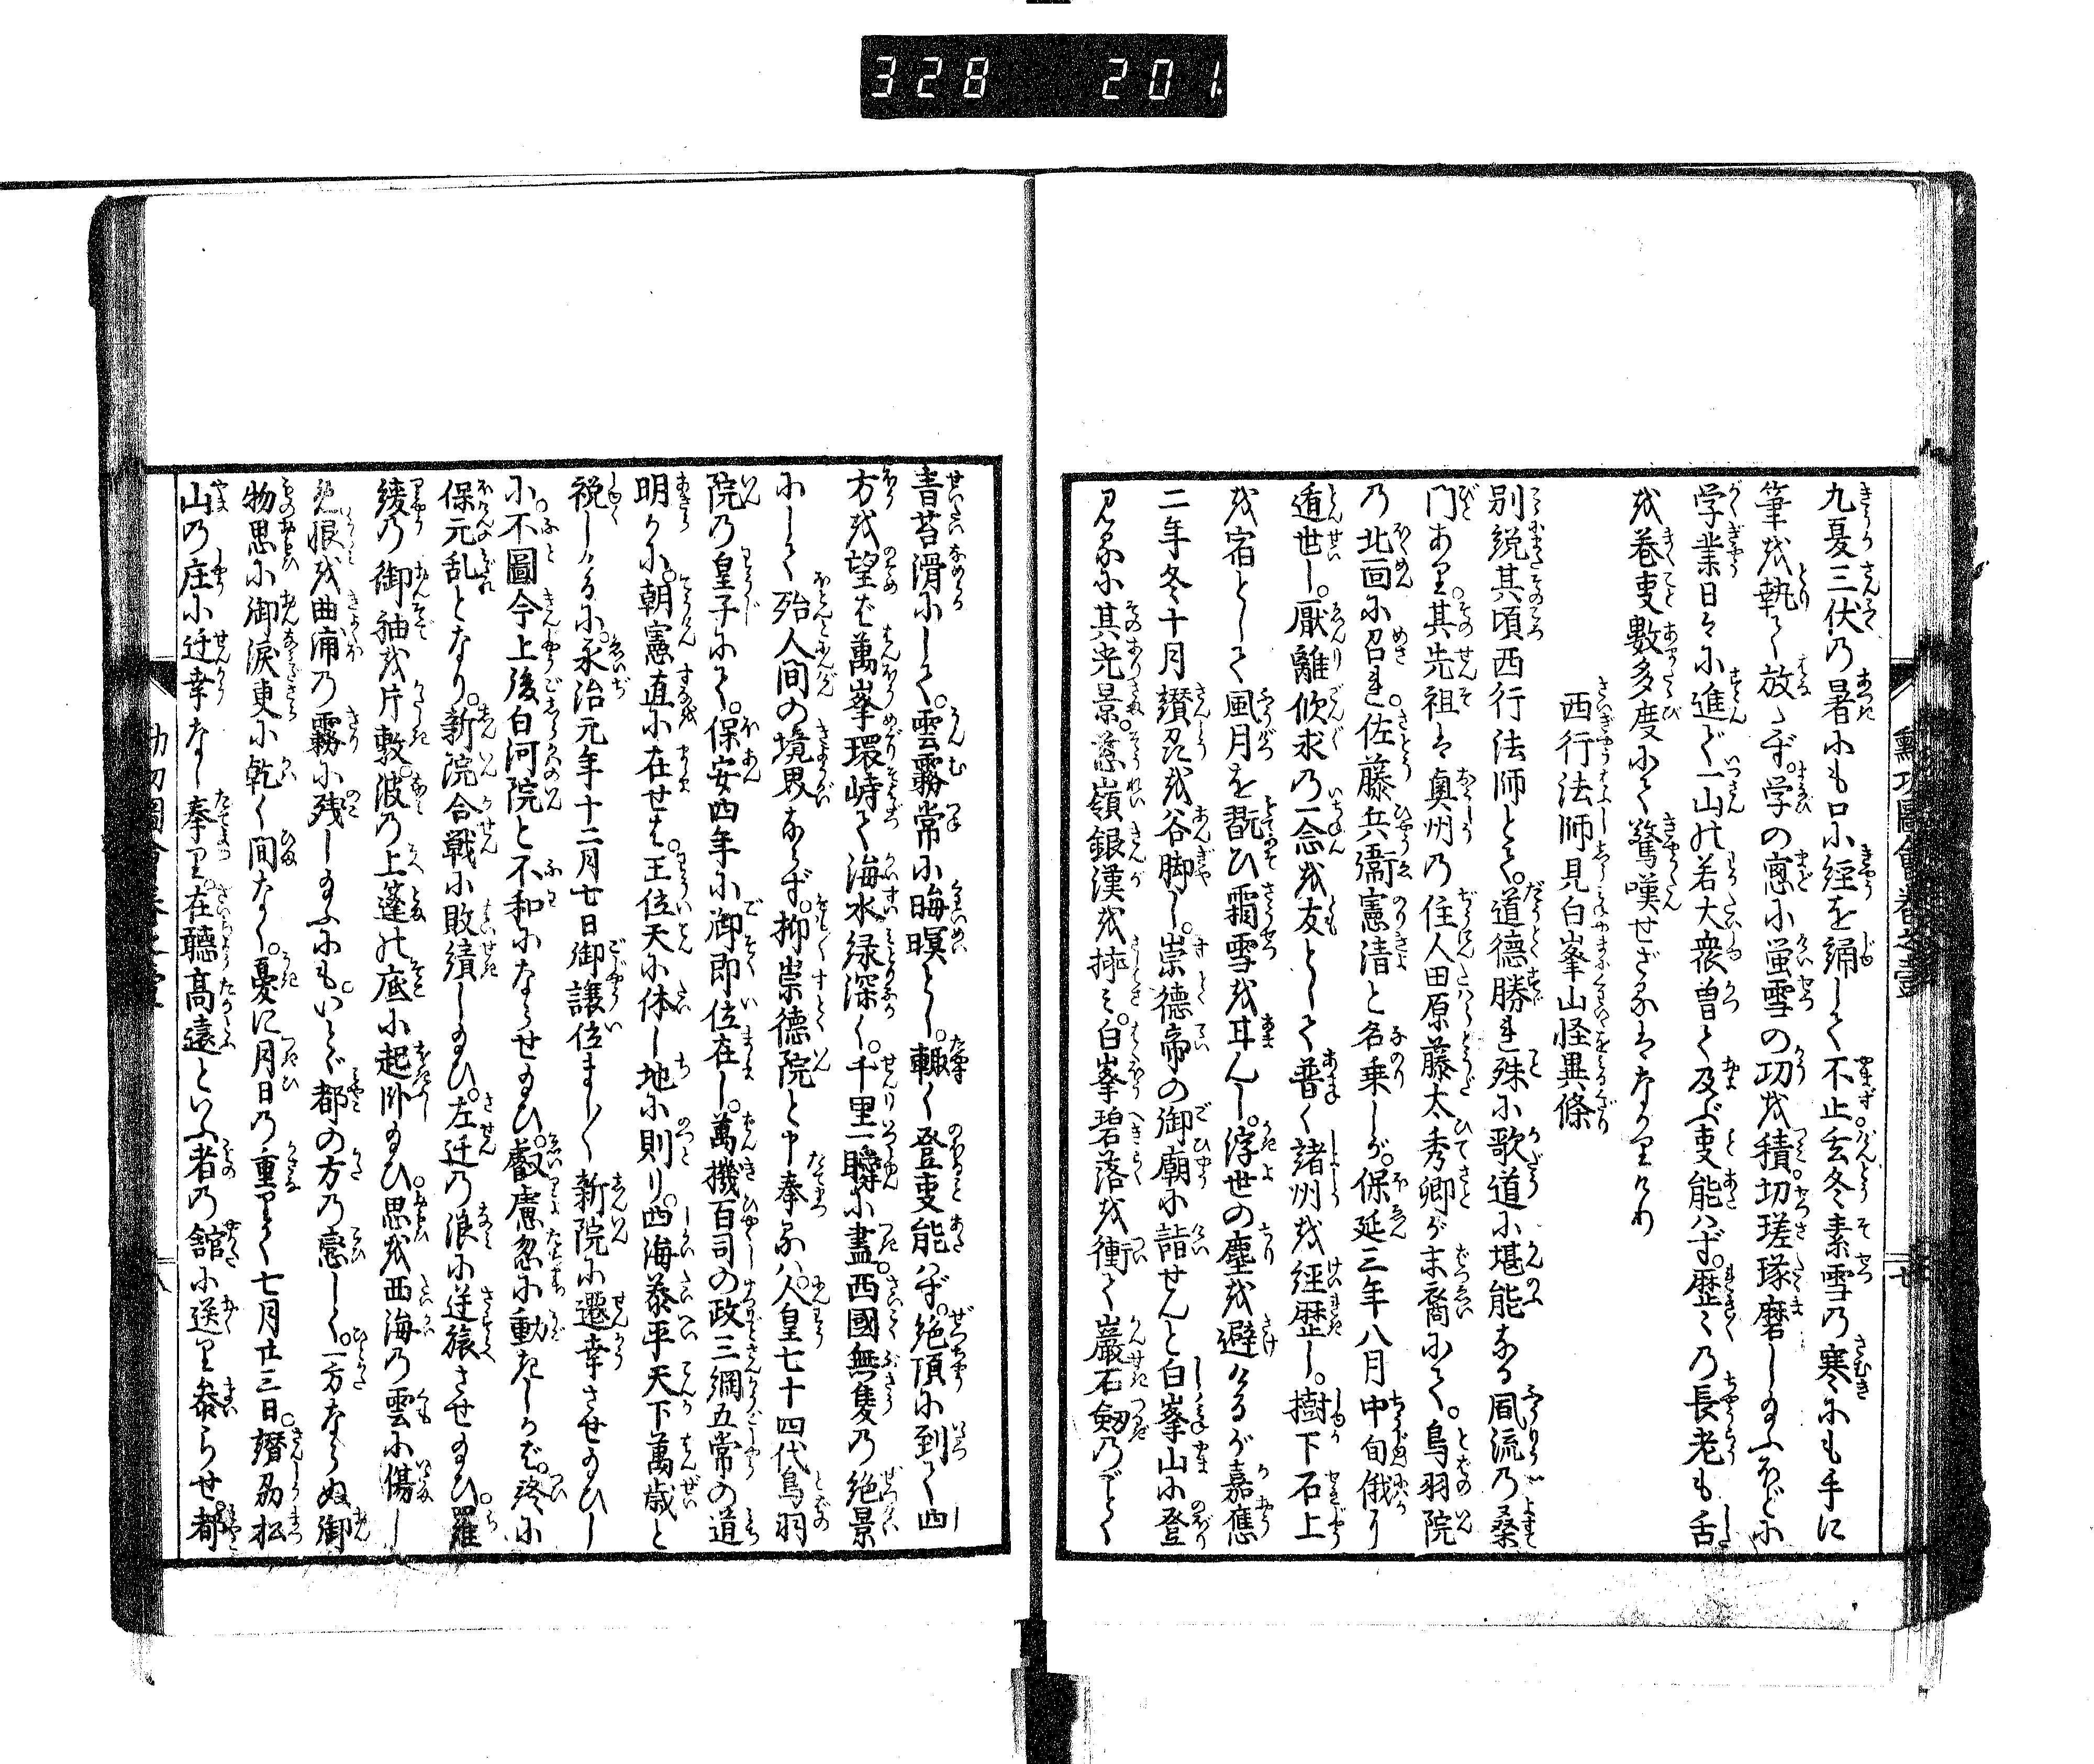 328 201
九夏三伏乃暑小も口小経を誦して不止玄冬素雪乃寒小も手に
筆越執て放ゞず学の窓小蛍雪の功越積切瑳琢磨し給ふほど小
学業日々小進で一山の若大衆曽て及ぶ事能ハず。歴々乃長老も舌
越巻事数多度小て驚嘆せざるはなかりけり
西行法師見白峯山怪異條
別説其頃西行法師とて。道徳勝れ殊小歌道小堪能なる風流乃桑
門あり。其先祖は奥州乃住人田原藤太秀郷が末裔小て。鳥羽院
乃北面小召れ。佐藤兵衞憲清と名乗しが。保延三年八月中旬俄り
遁世し。厭離欣求乃一念越友として普く諸州越経歴し。樹下石上
越宿として風月を翫ひ霜雪越耳んし。浮世の塵越避けるが嘉應
二年冬十月讃州越行脚し。崇徳帝の御廟小詣せんと白峯山小登
見る小其光景。葱嶺銀漢越挿ミ。白峯碧落越衝て巖石劔乃ごとく
青苔滑小して。雲霧常小晦暝とし。輙く登事能ハず。絶頂小到て四
方越望ば萬峯環峙て海水緑深く。千里一瞬小盡。西國無隻乃絶景
小して殆人間の境界ならず。抑崇徳院と申奉るハ。人皇七十四代鳥羽
院乃皇子小て。保安四年小御即位在し。萬機百司の政三綱五常の道
明か小。朝憲直小在せは。王位天小体し地小則り。四海泰平天下萬歳と
祝しける小。永治元年十二月七日御讓位まし〱て新院小遷幸させ給ひし
小。不圖今上後白河院と不和小ならせ給ひ。叡慮忽小動きしかば。終小
保元乱となり。新院合戦小敗績し給ひ。左迁乃浪小逆旅させ給ひ。羅
綾乃御袖越片敷。波乃上蓬の底小起卧給ひ思越西海乃雲小傷し
恨越曲浦乃霧小残し給ふ小も。いとど都の方乃恋しく。一方ならぬ御
物思小御涙更小乾く間なく。憂に月日乃重りて七月廿三日。讃州松
山乃庄小迁幸なし奉り。在聴高遠といふ者乃舘小送り参らせ。都